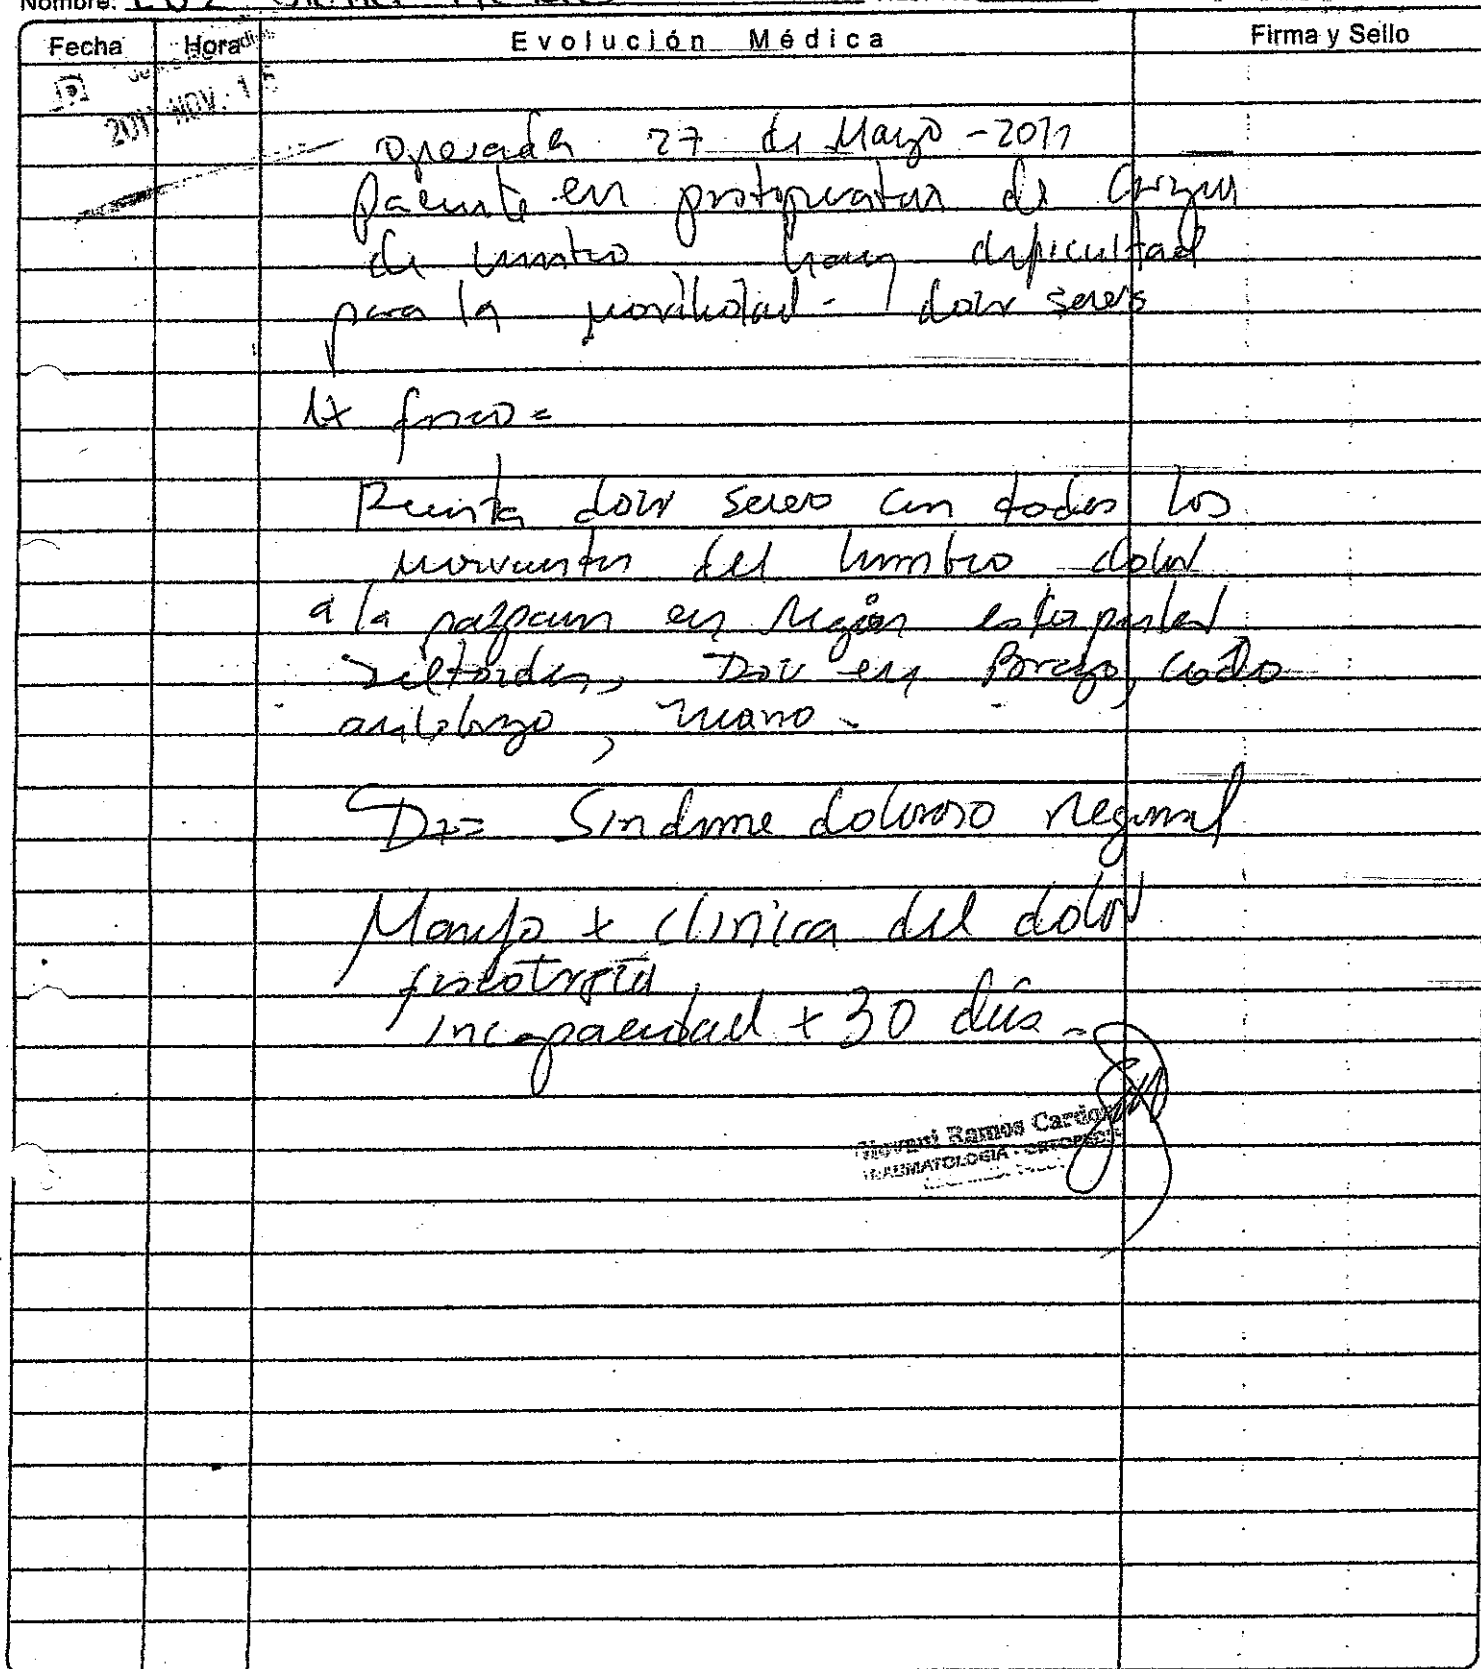 Nombre: LUZ
Fecha Hora Evolución Médica Firma y Sello
2011 NOV. 15
operada 27 de Mayo - 2011
Paciente en postoperatorio de Cirugia
de hombro dificultad
para la movilidad - dolor severo
Ex fisico =
Presenta dolor severo con todos los
movimientos del hombro dolor
a la palpacion en región
Deltoidea, Dolor en Brazo, codo
antebrazo, mano -
Dx = Sindrome doloroso regional
Manejo x clinica del dolor
fisioterapia
incapacidad x 30 dias -
Giovani Ramos Cardozo
TRAUMATOLOGIA - ORTOPEDIA